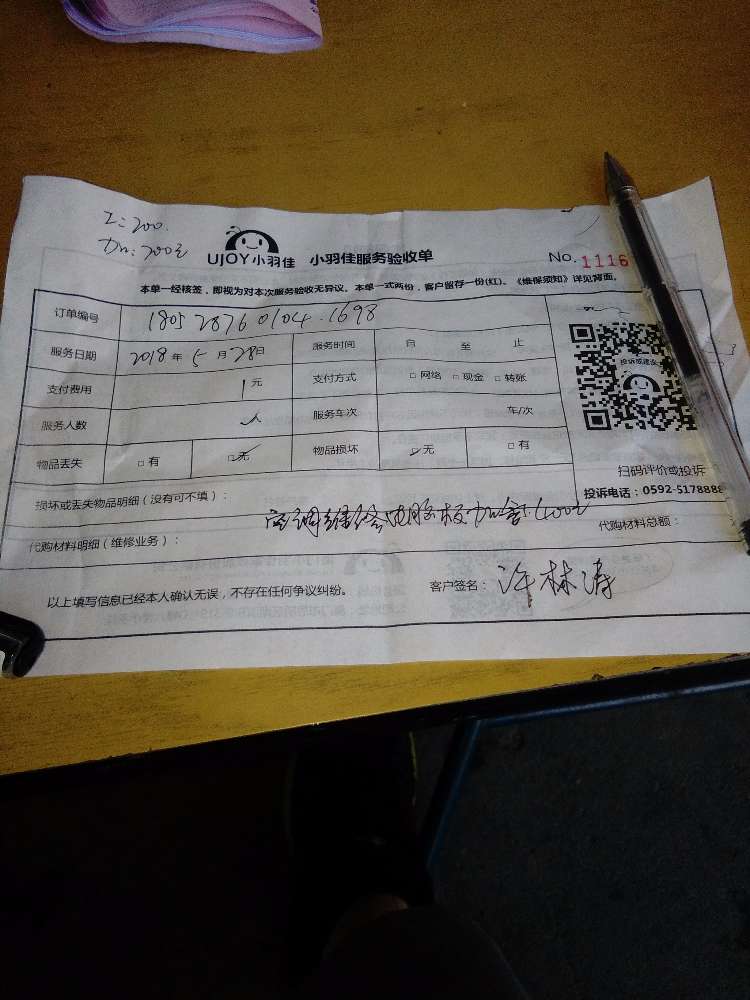 工:200.
UJOY小羽佳 小羽佳服务验收单 No. 1116
本单一经核签，即视为对本次服务验收无异议。本单一式两份，客户留存一份(红)。《维保须知》详见背面。
订单编号 180528760104.1698
服务日期 2018年5月28日 服务时间 自 至 止
支付费用 元 支付方式 □网络 □现金 □转账
服务人数 人 服务车次 车/次
物品丢失 □有 □无 物品损坏 □无 □有
投诉或建议
扫码评价或投诉
投诉电话：0592-5178888
损坏或丢失物品明细（没有可不填）：
空调维修电脑板加 400元
代购材料明细（维修业务）： 代购材料总额：
以上填写信息已经本人确认无误，不存在任何争议纠纷。 客户签名： 许林涛